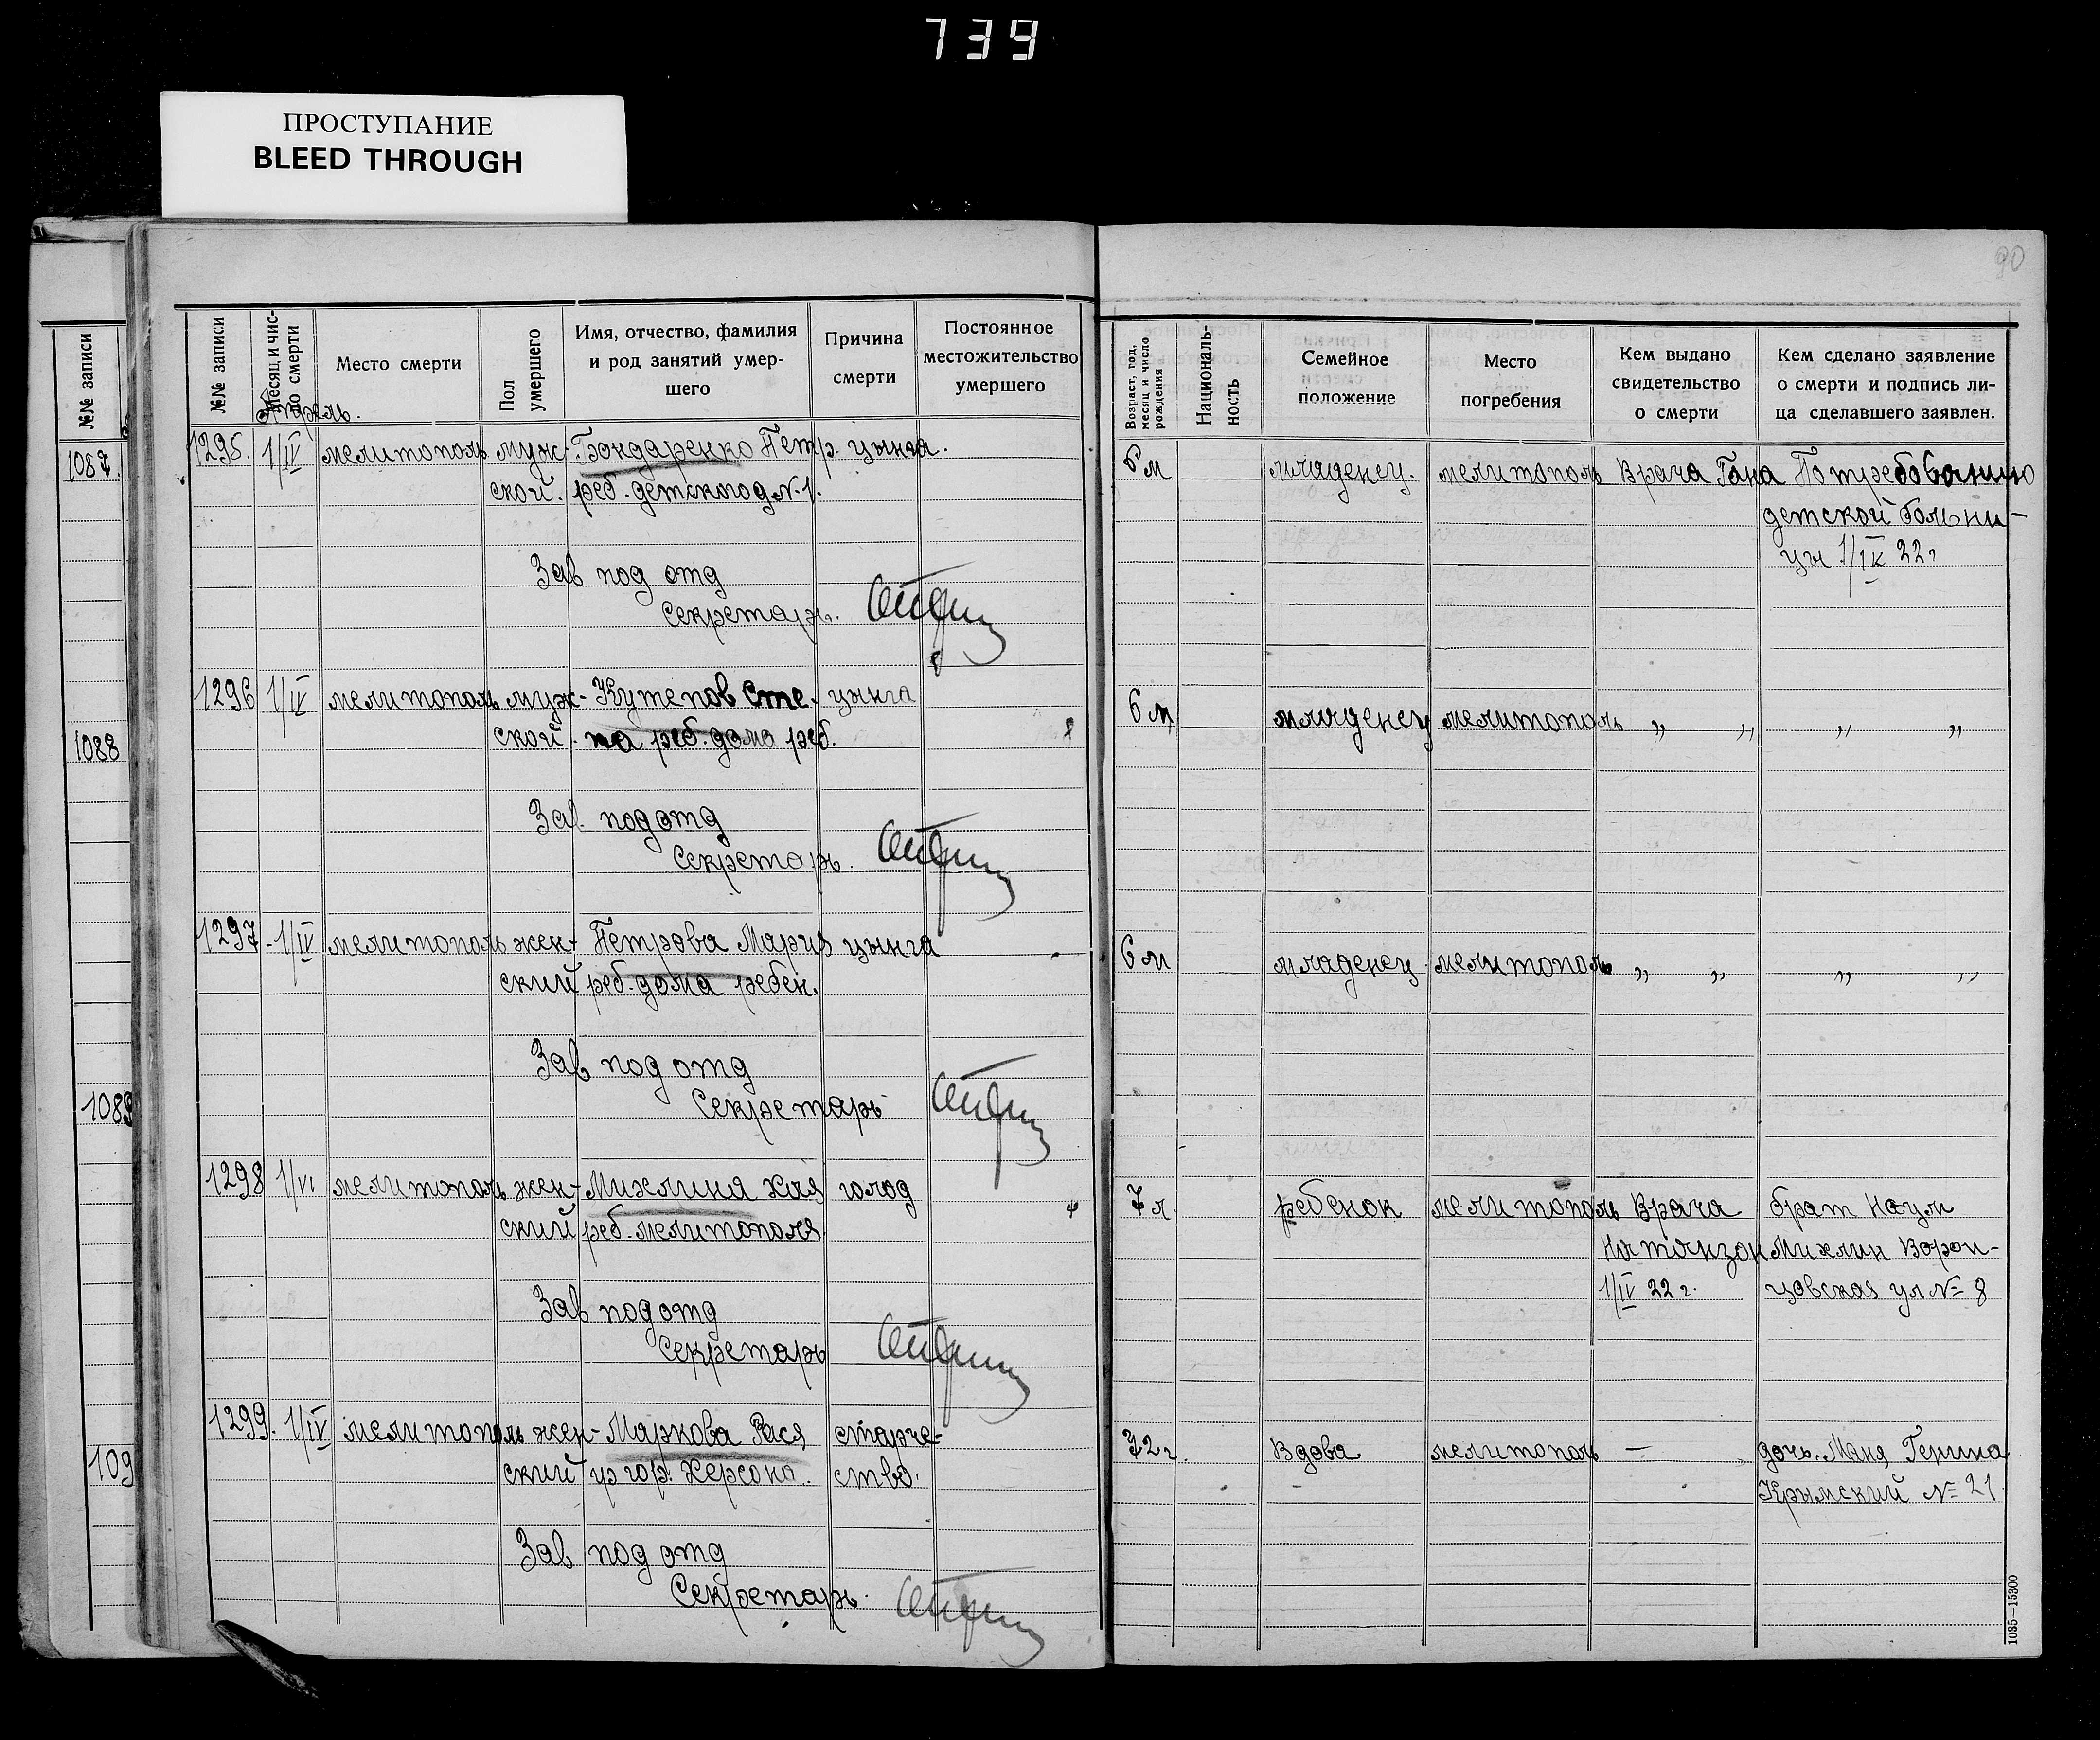 739
ПРОСТУПАНИЕ
BLEED THROUGH
90
№№ записи
1087.
1088
1089
109
№№ записи
Месяц и чис-
ло смерти
Место смерти
Пол
умершего
Имя, отчество, фамилия
и род занятий умер-
шего
Причина
смерти
Постоянное
местожительство
умершего
Возраст, год,
месяц и число
рождения
Националь-
ность
Семейное
положение
Место
погребения
Кем выдано
свидетельство
о смерти
Кем сделано заявление
о смерти и подпись ли-
ца сделавшего заявлен.
Апрель.
1295. 1/IV мелитополь муж- Бондаренко Петр. цынга. 6 м младенец. мелитополь Врача Гана По требованию
ской. реб. детского д № 1. детской больни-
цы 1/IV 22 г
Зав под отд
Секретарь.
1296 1/IV мелитополь муж- Кутепов Сте. цынга 6 м младенец мелитополь „ „ „ „
ской. па реб. дома реб.
Зав. подотд
Секретарь.
1297 - 1/IV мелитополь жен- Петрова Мария цынга 6 м младенец мелитополь „ „ „ „
ский реб. дома ребен.
Зав под отд
Секретарь
1298 1/VI мелитополь жен- Михлина Хая голод 7 л. ребенок мелитополь Врача брат Наум
ский реб. мелитополя Натанзон Михлин Ворон-
1/IV 22 г. цовская ул № 8
Зав подотд
Секретарь
1299. 1/IV мелитополь жен- Маркова Рася старче- 72 г. Вдова мелитополь — дочь. Маня Генина
ский гр гор. Херсона. ство. Крымский № 21
Зав под отд
Секретарь.
1035—15300